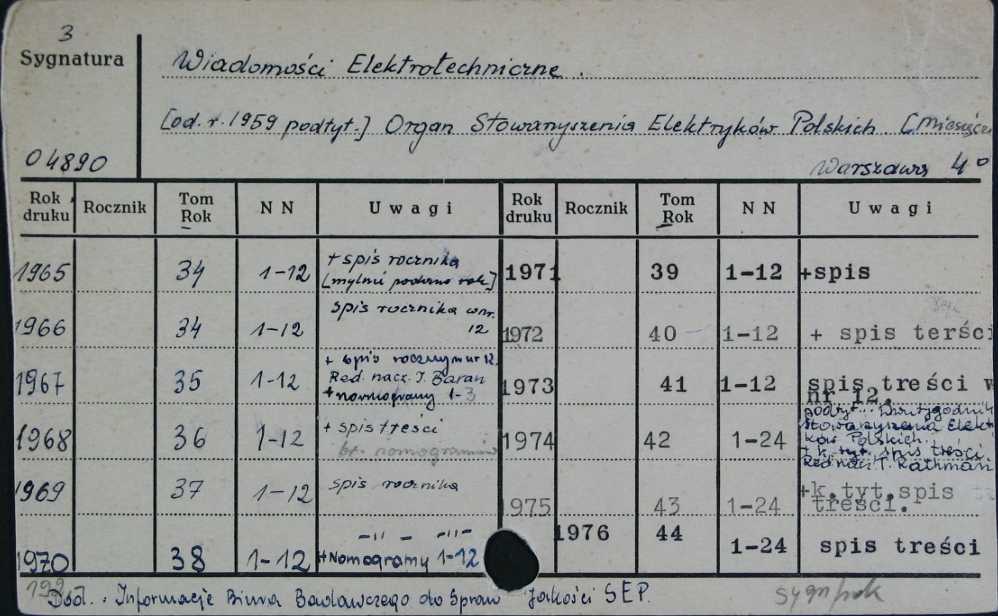 3
Sygnatura
Wiadomości Elektrotechniczne.
[od. r. 1959 podtyt.] Organ Stowarzyszenia Elektryków Polskich [Miesięcz
04890
Warszawa 4°
Rok druku Rocznik Tom Rok NN Uwagi Rok druku Rocznik Tom Rok NN Uwagi
1965 34 1-12 + spis rocznika [mylnie podano rok]
1966 34 1-12 spis rocznika w nr. 12
1967 35 1-12 + spis roczny w nr 12. Red. nacz. J. Baran + nomogramy 1-3
1968 36 1-12 + spis treści br. nomogramów
1969 37 1-12 spis rocznika
1970 38 1-12 -"- - -"- + Nomogramy 1-12
1971 39 1-12 +spis
1972 40 1-12 + spis terści
1973 41 1-12 spis treści w nr 12.
1974 42 1-24 podtyt.. Dwutygodnik Stowarzyszenia Elektryków Polskich. + k. tyt. spis treści Red nacz T. Rathman
1975 43 1-24 +k.tyt.spis treści.
1976 44 1-24 spis treści
Dod.: Informacje Biura Badawczego do Spraw Jakości SEP.